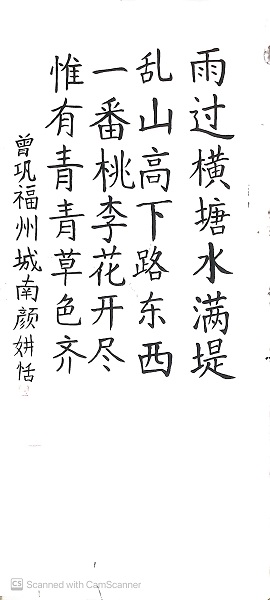 雨过横塘水满堤
乱山高下路东西
一番桃李花开尽
惟有青青草色齐
曾巩福州城南颜妍恬
CS Scanned with CamScanner